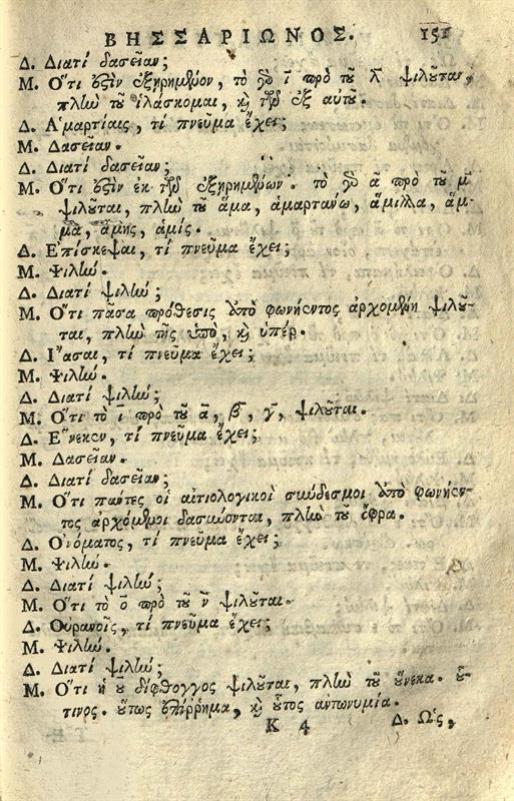 ΒΗΣΣΑΡΙΩΝΟΣ. 151
Δ. Διατί δασεῖαν;
Μ. Ὅτι ἐστὶν ἐξῃρημένον, τὸ γὸ ῑ πρὸ τοῦ λ̄ ψιλοῦται,
πλὴν τοῦ ἱλάσκομαι, καὶ τῶν ἐξ αὐτοῦ.
Δ. Ἁμαρτίαις, τί πνεῦμα ἔχει;
Μ. Δασεῖαν.
Δ. Διατί δασεῖαν;
Μ. Ὅτι ἐστὶν ἐκ τῶν ἐξῃρημένων. τὸ γὸ ᾱ πρὸ τοῦ μ̄
ψιλοῦται, πλὴν τοῦ ἅμα, ἁμαρτάνω, ἅμιλλα, ἅμ-
μα, ἁμῆς, ἁμίς.
Δ. Ἐπίσκεψαι, τί πνεῦμα ἔχει;
Μ. Ψιλήν.
Δ. Διατί ψιλήν;
Μ. Ὅτι πᾶσα πρόθεσις ἀπὸ φωνήεντος ἀρχομένη ψιλοῦ-
ται, πλὴν τῆς ὑπὸ, καὶ ὑπέρ.
Δ. Ἴασαι, τί πνεῦμα ἔχει;
Μ. Ψιλήν.
Δ. Διατί ψιλήν;
Μ. Ὅτι τὸ ῑ πρὸ τοῦ ᾱ, β̄, γ̄, ψιλοῦται.
Δ. Ἕνεκεν, τί πνεῦμα ἔχει;
Μ. Δασεῖαν.
Δ. Διατί δασεῖαν;
Μ. Ὅτι πάντες οἱ αἰτιολογικοὶ σύνδεσμοι ἀπὸ φωνήεν-
τος ἀρχόμενοι δασύνονται, πλὴν τοῦ ὄφρα.
Δ. Ὀνόματος, τί πνεῦμα ἔχει;
Μ. Ψιλήν.
Δ. Διατί ψιλήν;
Μ. Ὅτι τὸ ο̄ πρὸ τοῦ ν̄ ψιλοῦται.
Δ. Οὐρανοῖς, τί πνεῦμα ἔχει;
Μ. Ψιλήν.
Δ. Διατί ψιλήν;
Μ. Ὅτι ἡ ου δίφθογγος ψιλοῦται, πλὴν τοῦ οὕνεκα. οὕ-
τινος. οὕτως ἐπίρρημα, καὶ οὗτος ἀντωνυμία.
Κ 4 Δ. Ὡς,